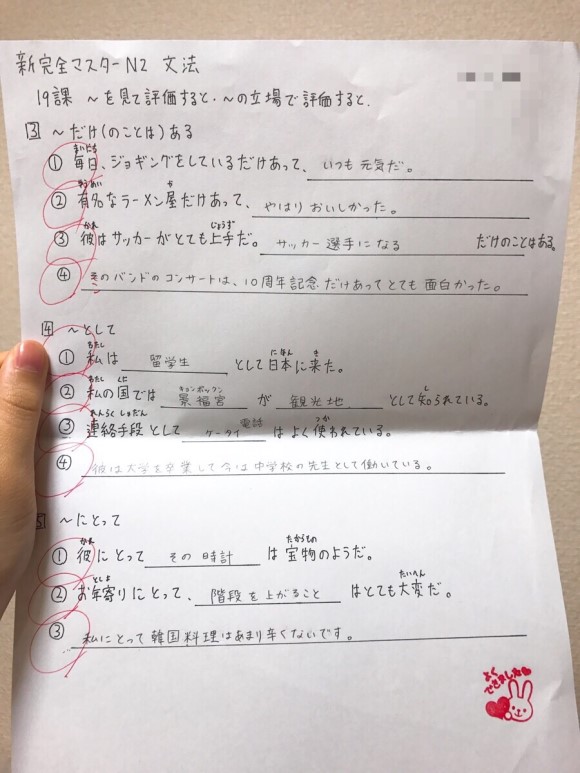 新完全マスターN2 文法
19課 ～を見て評価すると・～の立場で評価すると.
3 ～だけ(のことは)ある
まいにち
① 毎日、ジョギングをしているだけあって、いつも元気だ。
ゆうめい や
② 有名なラーメン屋だけあって、やはりおいしかった。
かれ じょうず
③ 彼はサッカーがとても上手だ。サッカー選手になる だけのことはある。
④ そのバンドのコンサートは、10周年記念だけあってとても面白かった。
4 ～として
わたし にほん き
① 私は 留学生 として日本に来た。
わたし くに キョンボックン し
② 私の国では 景福宮 が 観光地 として知られている。
れんらくしゅだん 電話 つか
③ 連絡手段として ケータイ はよく使われている。
④ 彼は大学を卒業して今は中学校の先生として働いている。
5 ～にとって
かれ たからもの
① 彼にとって その時計 は宝物のようだ。
としよ たいへん
② お年寄りにとって、階段を上がること はとても大変だ。
③ 私にとって韓国料理はあまり辛くないです。
よく
できました